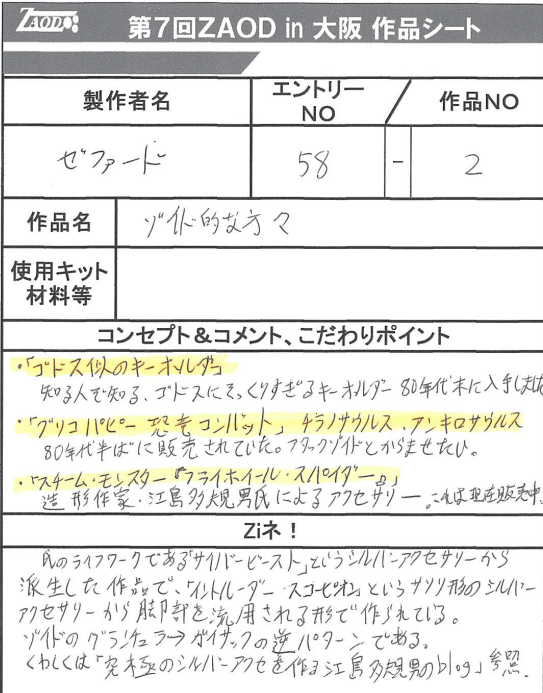 ZAOD
第7回ZAOD in 大阪 作品シート
製作者名
エントリー
NO
作品NO
ゼファード
58 - 2
作品名
ゾイド的な方々
使用キット
材料等
コンセプト＆コメント、こだわりポイント
・「ゴドス似のキーホルダー」
知る人ぞ知る、ゴドスにそっくりすぎるキーホルダー 80年代末に入手しました
・「グリコパピー 恐竜コンバット」 チラノサウルス、アンキロサウルス
80年代半ばに販売されていた。ブラックゾイドとからませたい。
・「スチーム・モンスター『フライホイール・スパイダー』」
造形作家・江島多規男氏によるアクセサリー。これは現在販売中。
Ziネ！
氏のライフワークである「サイバービースト」というシルバーアクセサリーから
派生した作品で、「イントルーダー スコーピオン」というサソリ形のシルバー
アクセサリーから脚部を流用される形で作られている。
ゾイドのグランチュラ→ガイサックの逆パターンである。
くわしくは「究極のシルバーアクセを作る江島多規男のblog」参照.